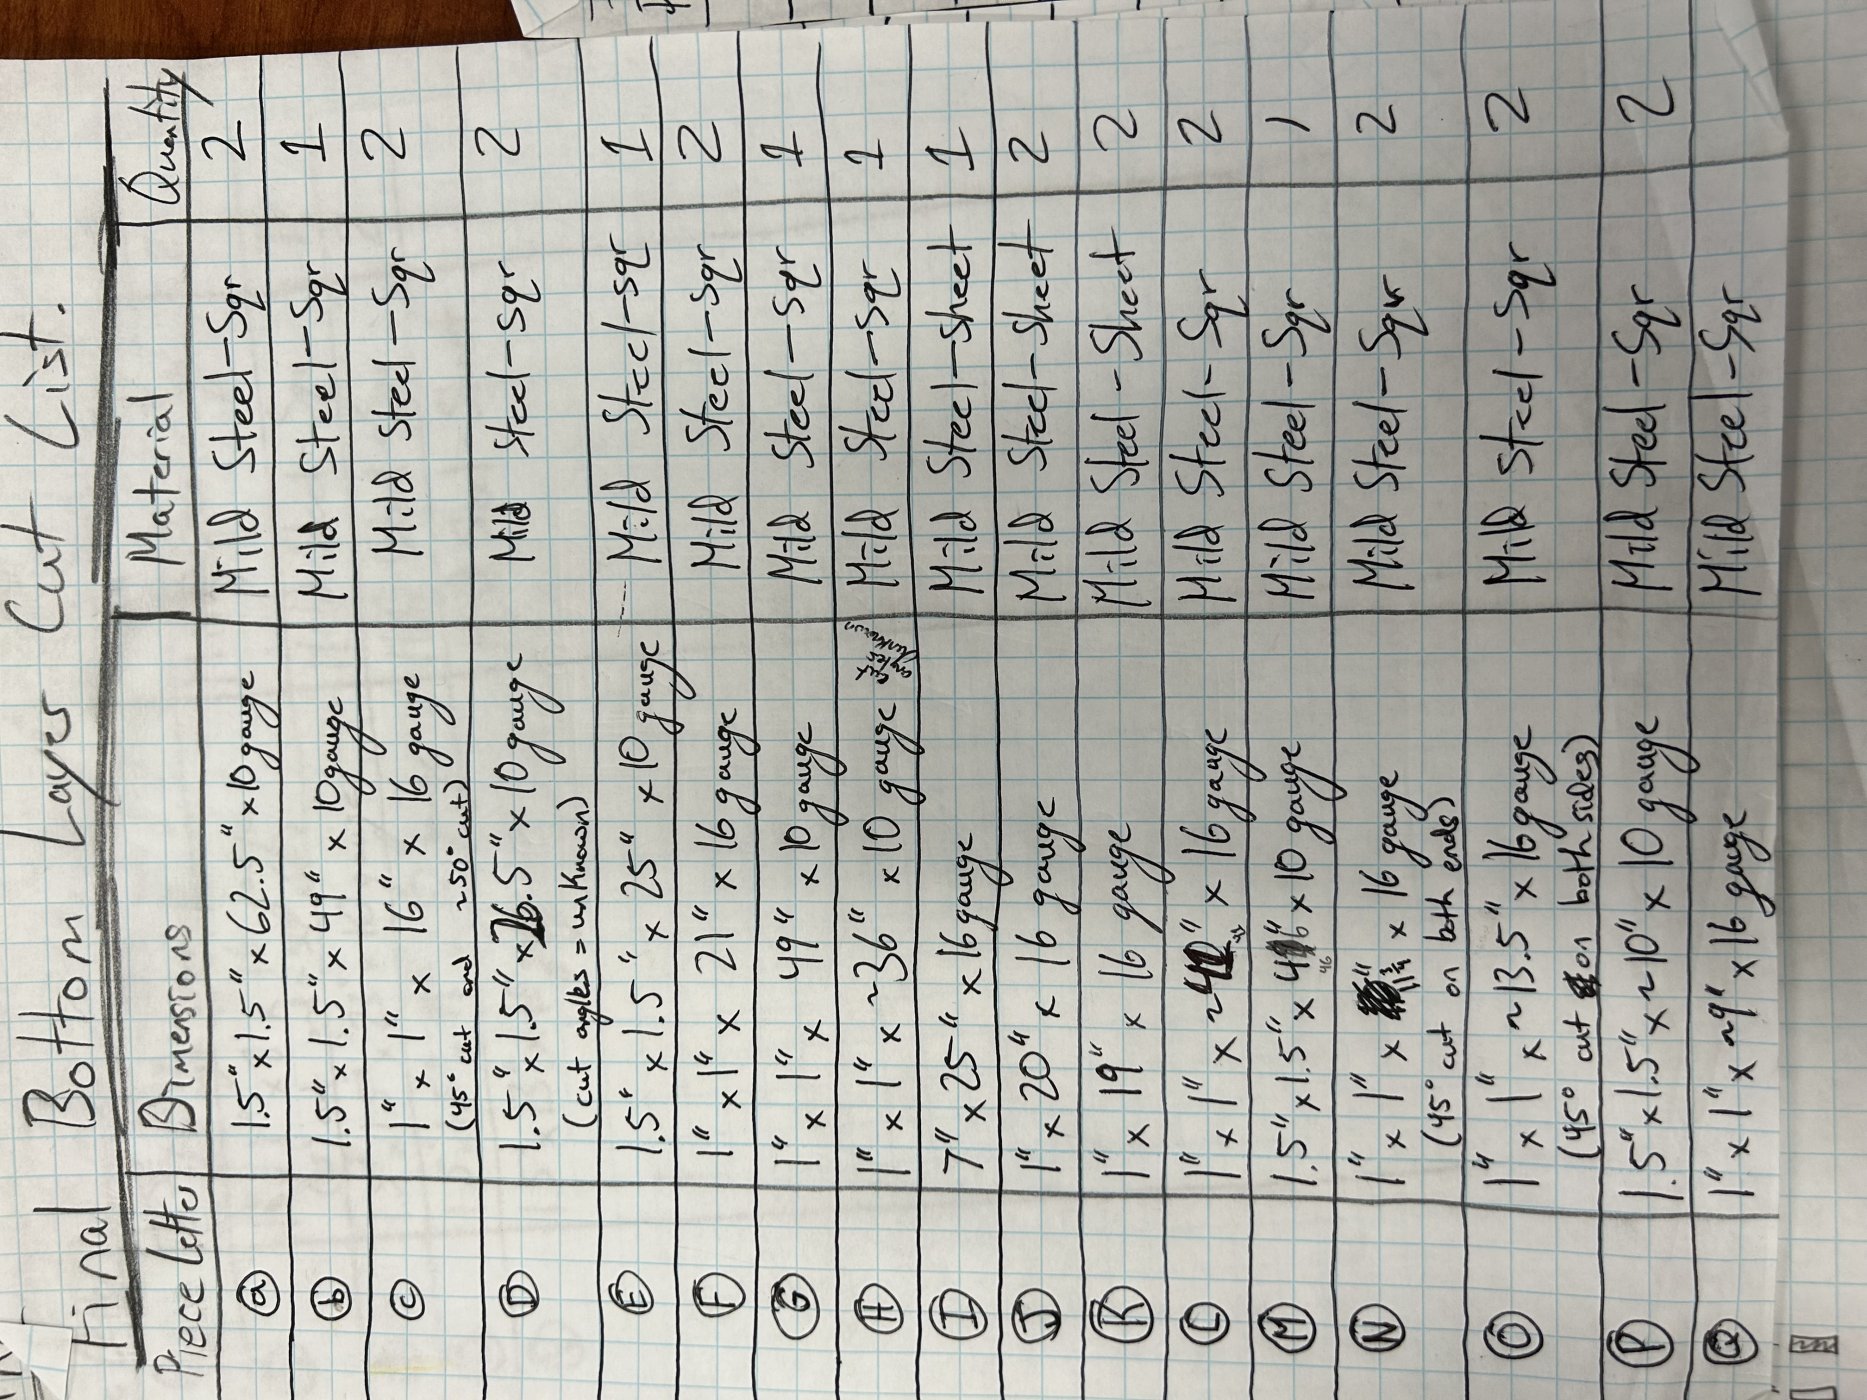 Final Bottom Layer Cut List.
Piece Letter Dimensions Material Quantity
a 1.5" x 1.5" x 62.5" x 10 gauge Mild Steel-Sqr 2
b 1.5" x 1.5" x 49" x 10 gauge Mild Steel-Sqr 1
c 1" x 1" x 16" x 16 gauge Mild Steel-Sqr 2
(45° cut and ~50° cut)
D 1.5" x 1.5" x 26.5" x 10 gauge Mild Steel-Sqr 2
(cut angles = unknown)
E 1.5" x 1.5" x 25" x 10 gauge Mild Steel-sqr 1
F 1" x 1" x 21" x 16 gauge Mild Steel-Sqr 2
G 1" x 1" x 49" x 10 gauge Mild Steel-Sqr 1
H 1" x 1" x ~36" x 10 gauge Mild Steel-Sqr 1
unknown
I 7" x 25" x 16 gauge Mild Steel-Sheet 1
J 1" x 20" x 16 gauge Mild Steel-Sheet 2
K 1" x 19" x 16 gauge Mild Steel-Sheet 2
L 1" x 1" x x 16 gauge Mild Steel-Sqr 2
M 1.5" x 1.5" x 46" x 10 gauge Mild Steel-Sqr 1
46
N 1" x 1" x x 16 gauge Mild Steel-Sqr 2
(45° cut on both ends)
O 1" x 1" x ~13.5" x 16 gauge Mild Steel-Sqr 2
(45° cut on both sides)
P 1.5" x 1.5" x ~10" x 10 gauge Mild Steel-Sqr 2
Q 1" x 1" x ~9" x 16 gauge Mild Steel-Sqr